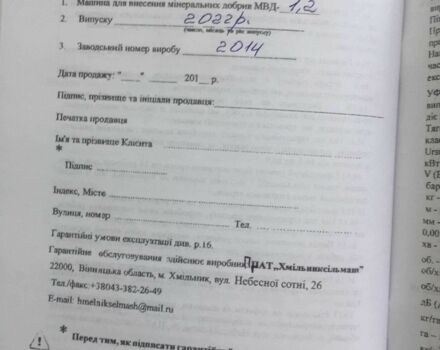 1. Машина для внесення мінеральних добрив МВД- 1,2
2. Випуску 2022р.
(число, місяць та рік випуску)
3. Заводський номер виробу 2014
Дата продажу: "___" _____ 201__ р.
Підпис, прізвище та ініціали продавця:
Печатка продавця
Ім'я та прізвище Клієнта
*
Підпис
Індекс, Місто
Вулиця, номер Тел.
Гарантійні умови експлуатації див. р.16.
Гарантійне обслуговування здійснює виробник ПрАТ „Хмільниксільмаш"
22000, Вінницька область, м. Хмільник, вул. Небесної сотні, 26
Тел./факс +38043-382-26-49
E-mail: hmelnikselmash@mail.ru
*
Перед тим, як підписати